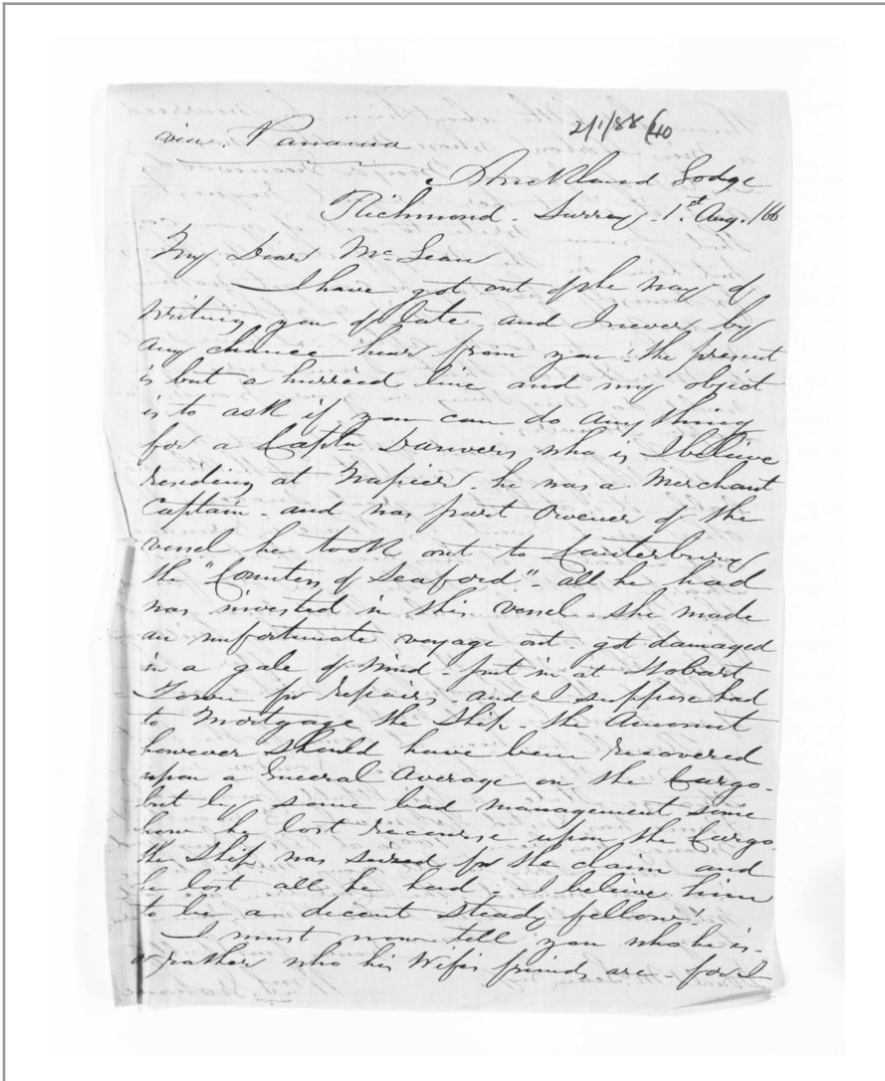 2/1/88 (40
via. Panama
Strickland Lodge
Richmond. Surrey. 1st Aug. /66
My Dear McLean
I have got out of the way of
writing you of late and I never by
any chance hear from you: the present
is but a hurried line and my object
is to ask if you can do any thing
for a Captn Danvers who is I believe
residing at Napier. he was a Merchant
Captain. and was part Owener of the
vessel he took out to Canterbury
the "Countess of Seaford". all he had
was invested in this vessel. she made
an unfortunate voyage out. got damaged
in a gale of wind. put in at Hobart
Town for repairs. and I suppose had
to Mortgage the Ship. the Amount
however should have been recovered
upon a General Average on the Cargo.
but by some bad management some
how he lost recourse upon the Cargo.
the Ship was seized for the claim and
he lost all he had. I beleive him
to be a decent steady fellow!
I must now tell you who he is.
or rather who his Wife's friends are - for I